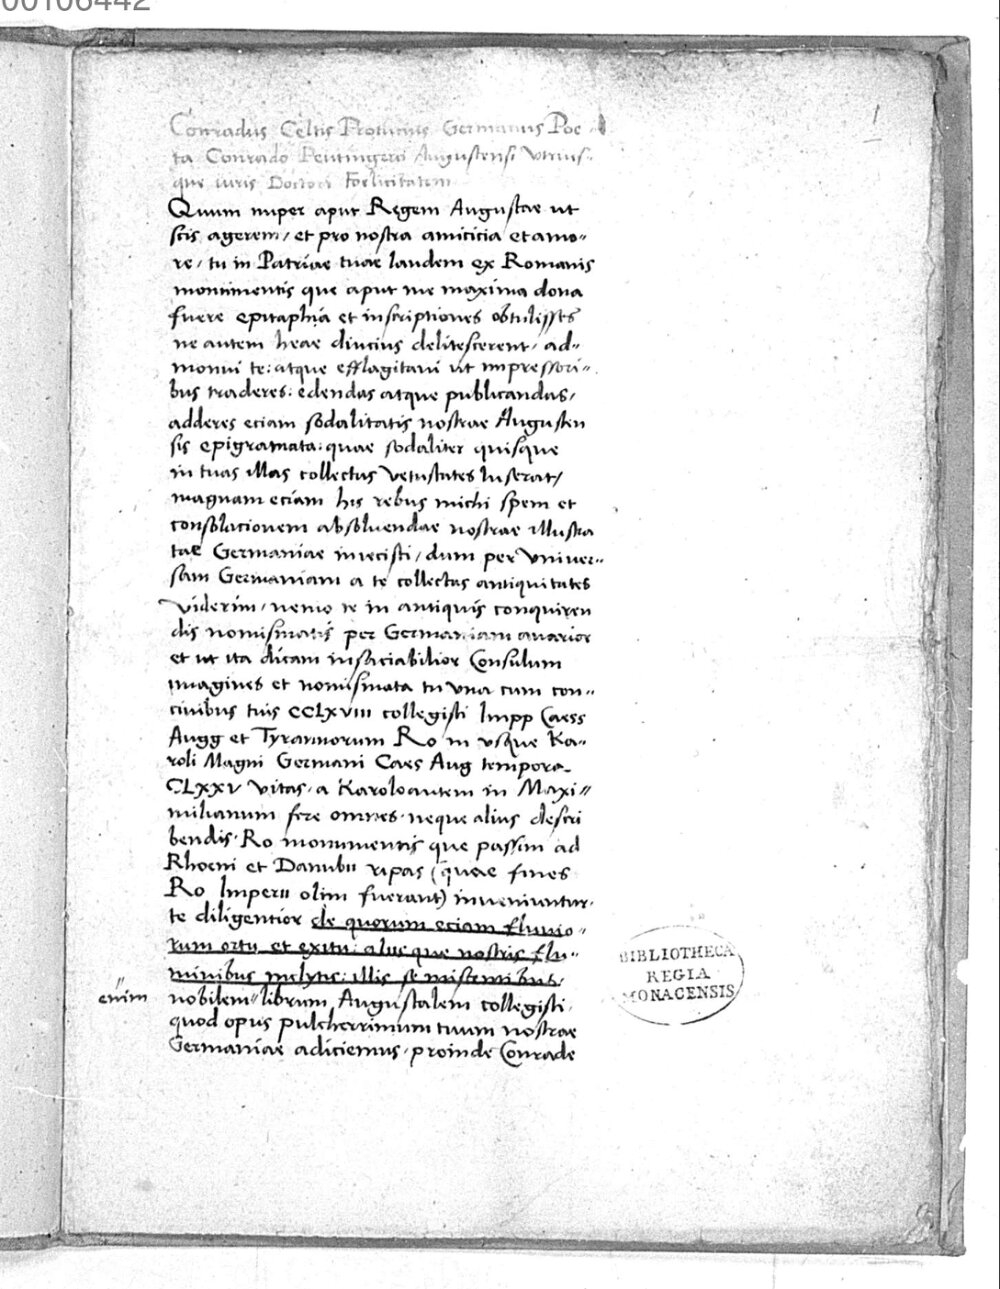 00106442
1
Conradus Celtis Protucius Germanus Poe-
ta Conrado Peutingero Augustensi Utrius-
que iuris Doctori Foelicitatem
Quum nuper aput Regem Augustae ut
scis agerem/ et pro nostra amicicia et amo=
re/ tu in Patriae tuae laudem ex Romanis
monumentis que aput me maxima dona
fuere epitaphia et inscriptiones obtulisses
ne autem heae diucius delitescerent/ ad=
monui te: atque efflagitavi ut impressori=
bus traderes: edendas atque publicandas/
adderes eciam sodalitatis nostrae Augusten
sis epigramata: quae sodaliter quisque
in tuas illas collectas Vetustates luserat/
magnam eciam his rebus michi spem et
consolacionem absoluendae nostrae illustra
tae Germaniae iniecisti/ dum per Univer=
sam Germaniam a te collectas antiquitates
Viderim/ nemo te in antiquis conquiren
dis nomismatis per Germaniam avarior
et ut ita dicam insaciabilior Consulum
imagines et nomismata tu una cum con=
civibus tuis CCLXVIII collegisti Impp Caess
Augg et Tyrannorum Ro in usque Ka=
roli Magni Germani Caes Aug tempora
CLXXV Vitas/ a Karolo autem in Maxi=
milianum fere omnes/ neque alius descri
bendis Ro monumentis que passim ad
Rhoeni et Danubii ripas (quae fines
Ro Imperii olim fuerant) inveniuntur/
te diligentior de quorum eciam fluvio=
rum ortu et exitu: aliis que nostris flu=
minibus inclytis: illis se miscentibus/
enim
nobilem librum Augustalem collegisti/
quod opus pulcherrimum tuum nostrae
Germaniae adiciemus/ proinde Conrade
BIBLIOTHECA
REGIA
MONACENSIS